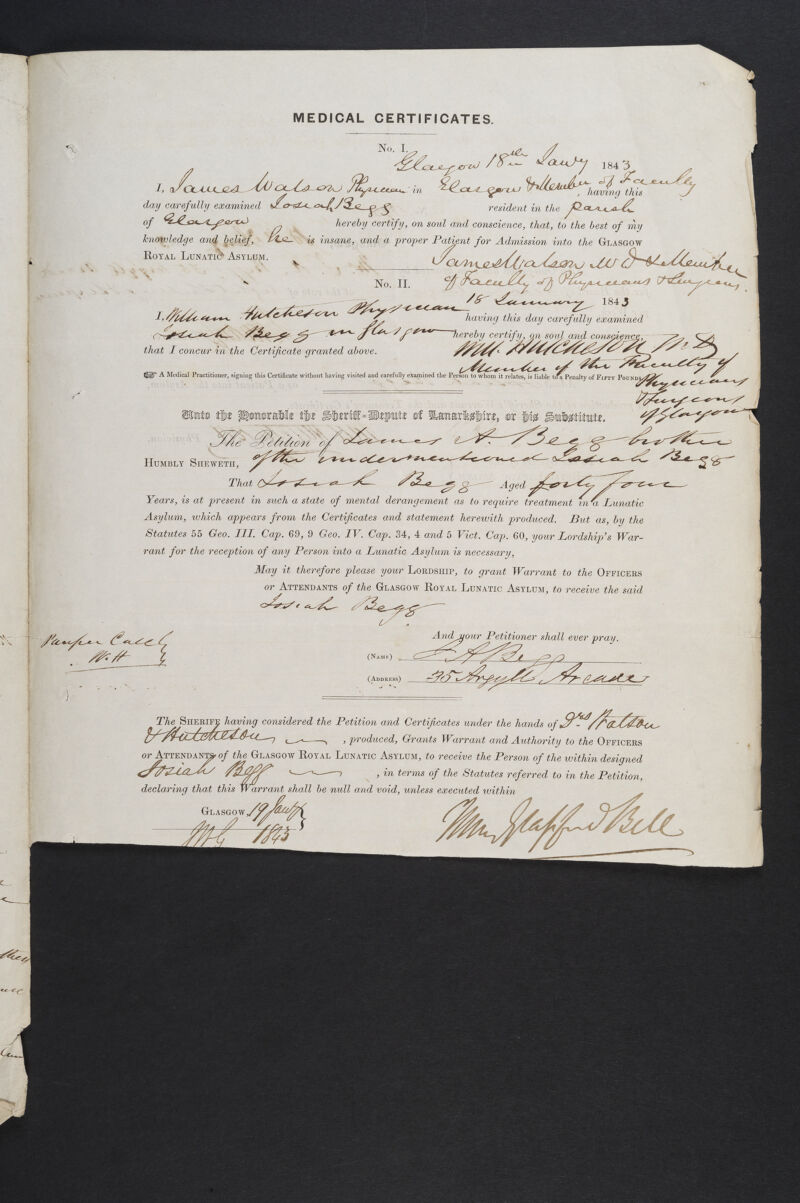 MEDICAL CERTIFICATES.
No. I.
Glasgow 18th Jany 1843
I, James Watson Physician in Glasgow & Member of Faculty, having this
day carefully examined Josiah Begg resident in the parish
of Glasgow hereby certify, on soul and conscience, that, to the best of my
knowledge and belief, he is insane, and a proper Patient for Admission into the GLASGOW
ROYAL LUNATIC ASYLUM.
James Watson M D & Member
of Faculty of Physicians & Surgeons.
No. II.
18 January 1843
I, William Hutcheson Physician having this day carefully examined
Josiah Begg in Glasgow hereby certify, on soul and conscience,
that I concur in the Certificate granted above.
Wm. Hutcheson M.D
Member of the Faculty of
Physicians
& Surgeons
of Glasgow
☞ A Medical Practitioner, signing this Certificate without having visited and carefully examined the Person to whom it relates, is liable to a Penalty of FIFTY POUNDS.
Unto the Honorable the Sheriff-Depute of Lanarkshire, or his Substitute.
The Petition of James A. Begg brother
HUMBLY SHEWETH, of the undermentioned Josiah Begg
That Josiah Begg Aged forty four
Years, is at present in such a state of mental derangement as to require treatment in a Lunatic
Asylum, which appears from the Certificates and statement herewith produced. But as, by the
Statutes 55 Geo. III. Cap. 69, 9 Geo. IV. Cap. 34, 4 and 5 Vict. Cap. 60, your Lordship's War-
rant for the reception of any Person into a Lunatic Asylum is necessary,
May it therefore please your LORDSHIP, to grant Warrant to the OFFICERS
or ATTENDANTS of the GLASGOW ROYAL LUNATIC ASYLUM, to receive the said
Josiah Begg
And your Petitioner shall ever pray.
Pauper Case
W.H
(NAME) J A Begg
(ADDRESS) 35 Argyll Arcade
The SHERIFF having considered the Petition and Certificates under the hands of Drs Watson
& Hutcheson, produced, Grants Warrant and Authority to the OFFICERS
or ATTENDANTS of the GLASGOW ROYAL LUNATIC ASYLUM, to receive the Person of the within designed
Josiah Begg, in terms of the Statutes referred to in the Petition,
declaring that this Warrant shall be null and void, unless executed within
GLASGOW, 19 Jany
1843
Henry Glassford Bell